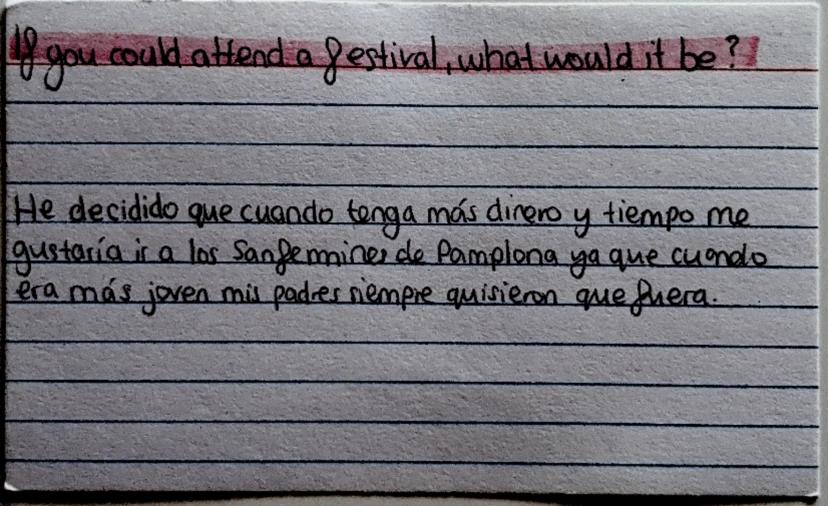 If you could attend a festival, what would it be?
He decidido que cuando tenga más dinero y tiempo me
gustaría ir a los Sanfermines de Pamplona ya que cuando
era más joven mis padres siempre quisieron que fuera.